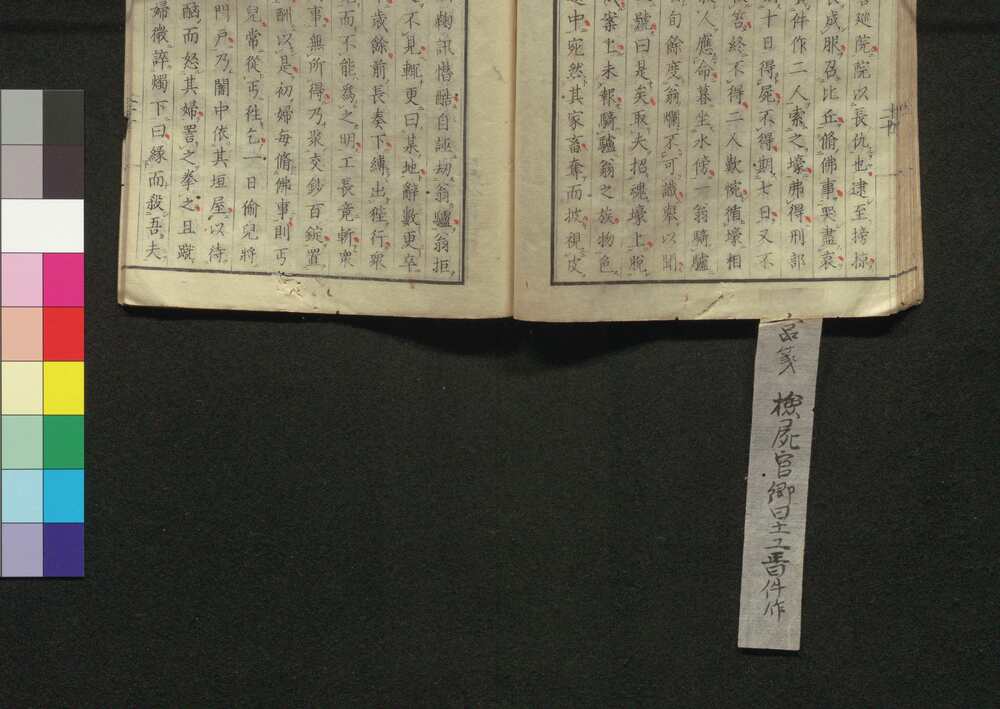 巡院院以長仇也逮至搒掠
長成服召比丘脩佛事哭盡哀
件作二人索之壕弗得刑部
十日得屍不得期七日又不
咎終不得二人歎惋循壕相
人應命暮坐水傍一翁騎驢
旬餘度翁爛不可識擧以聞
案上未報騎驢翁之族物色
號曰是矣取夫招魂壕上脫
中宛然其家畜奪而披視皮
鞫訊慘酷自誣劫翁驢翁拒
不見輒更曰某地辭數更卒
歲餘前長奏下縛出徃行衆
而不能爲之明工長竟斬衆
事無所得乃裒交鈔百錠置
酬以是初婦每脩佛事則丐
兒常從丐徃乞一日偷兒將
門戶乃闇中依其垣屋以待
酗而怒其婦詈之拳之且蹴
婦微誶燭下曰緣而殺吾夫
檢屍官鄉里
件作